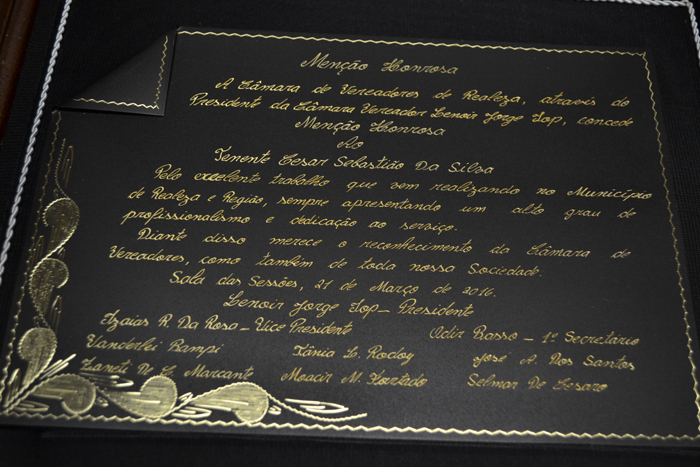 Menção Honrosa
A Câmara de Vereadores de Realeza, através do
President da Câmara Vereador Lenoir Jorge Sop, concede
Menção Honrosa
Ao
Tenente Cesar Sebastião Da Silva
Pelo excelente trabalho que vem realizando no Município
de Realeza e Região, sempre apresentando um alto grau de
profissionalismo e dedicação ao serviço.
Diante disso merece o reconhecimento da Câmara de
Vereadores, como também de toda nossa Sociedade.
Sala das Sessões, 21 de Março de 2016.
Lenoir Jorge Sop - Presidente
Izaias R. Da Rosa - Vice President Odir Basso - 1º Secretário
Vanderlei Bampi Tânia L. Rodoy José A. Dos Santos
Zaneti De C. Marcante Moacir N. Furtado Selmar De Cesaro